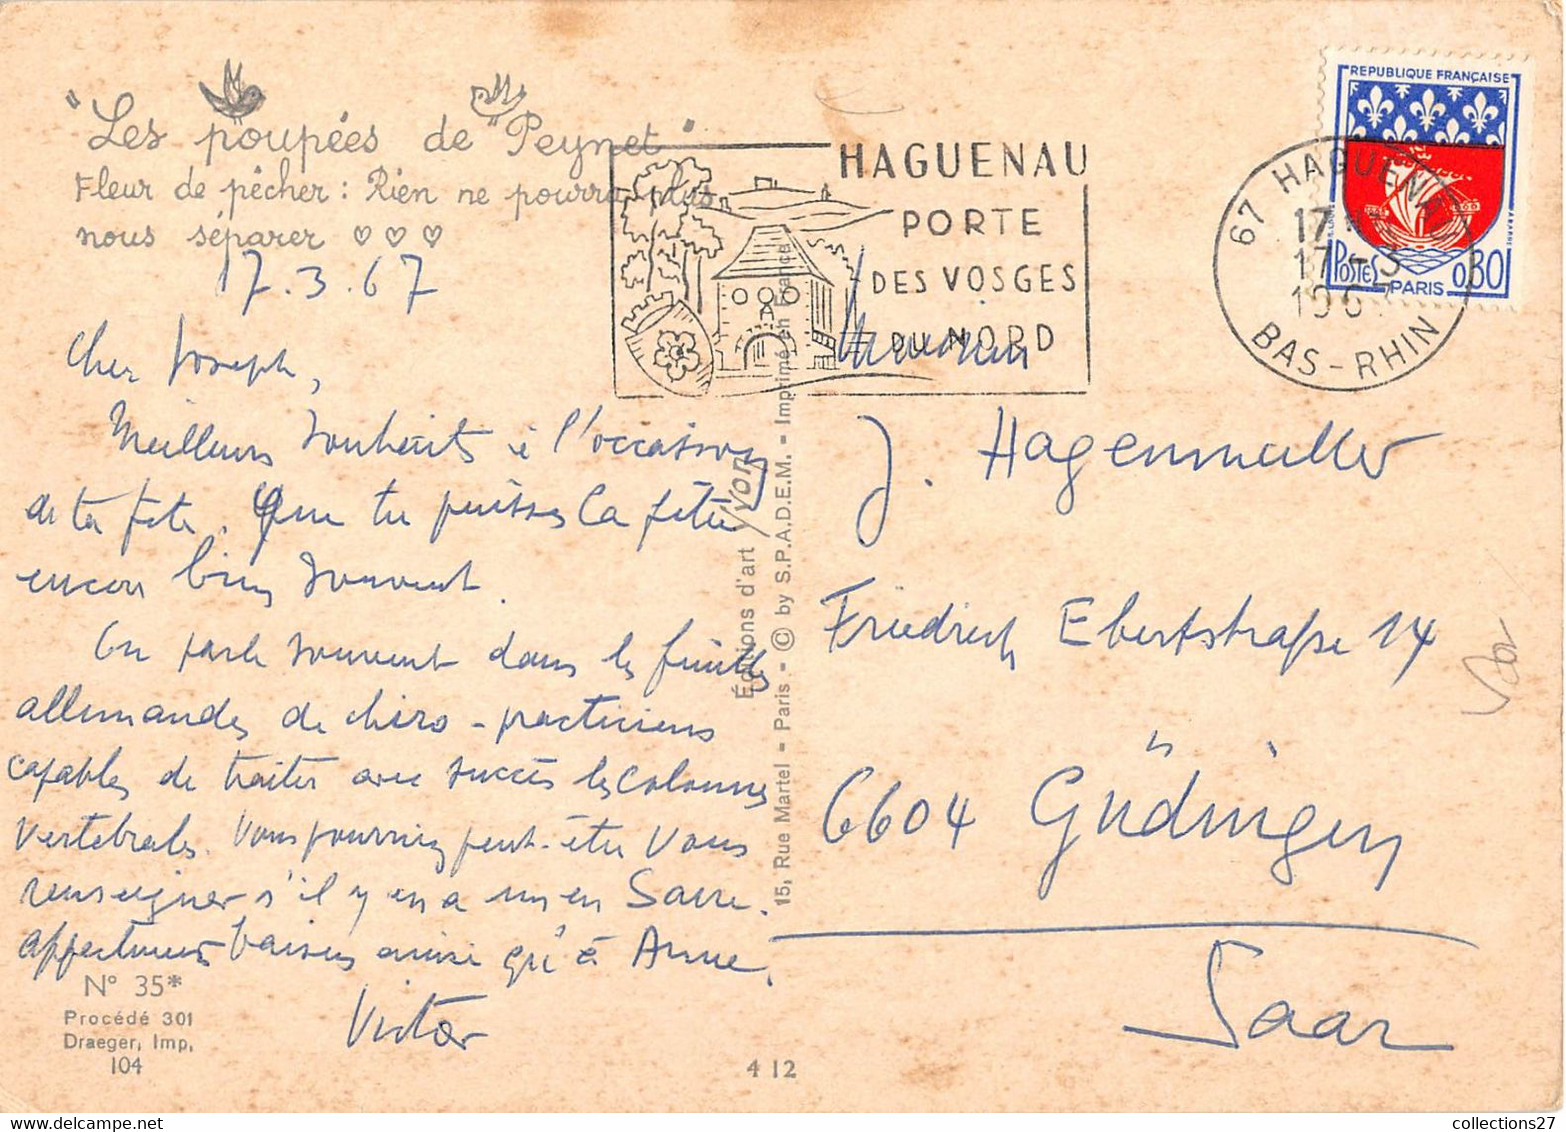 "Les poupées de Peynet"
Fleur de pêcher : Rien ne pourra plus
nous séparer
17.3.67
Cher Joseph,
Meilleurs souhaits à l'occasion
de ta fête. Que tu puisses la fêter
encore bien souvent.
On parle souvent dans les feuilles
allemandes de chiro-practiciens
capables de traiter avec succès les colonnes
vertébrales. Vous pourriez peut-être vous
renseigner s'il y en a un en Sarre.
Affectueux baisers ainsi qu'à Anne.
Victor
N° 35*
Procédé 301
Draeger, Imp.
104
4 12
Éditions d'art Yvon
15, Rue Martel - Paris - © by S.P.A.D.E.M. - Imprimé en France
HAGUENAU
PORTE
DES VOSGES
DU NORD
67 HAGUENAU
17
17-3
1967
BAS-RHIN
REPUBLIQUE FRANÇAISE
POSTES
0,30
PARIS
Monsieur
J. Hagenmuller
Friedrich Ebertstraße 14
6604 Güdingen
Saar
collections27